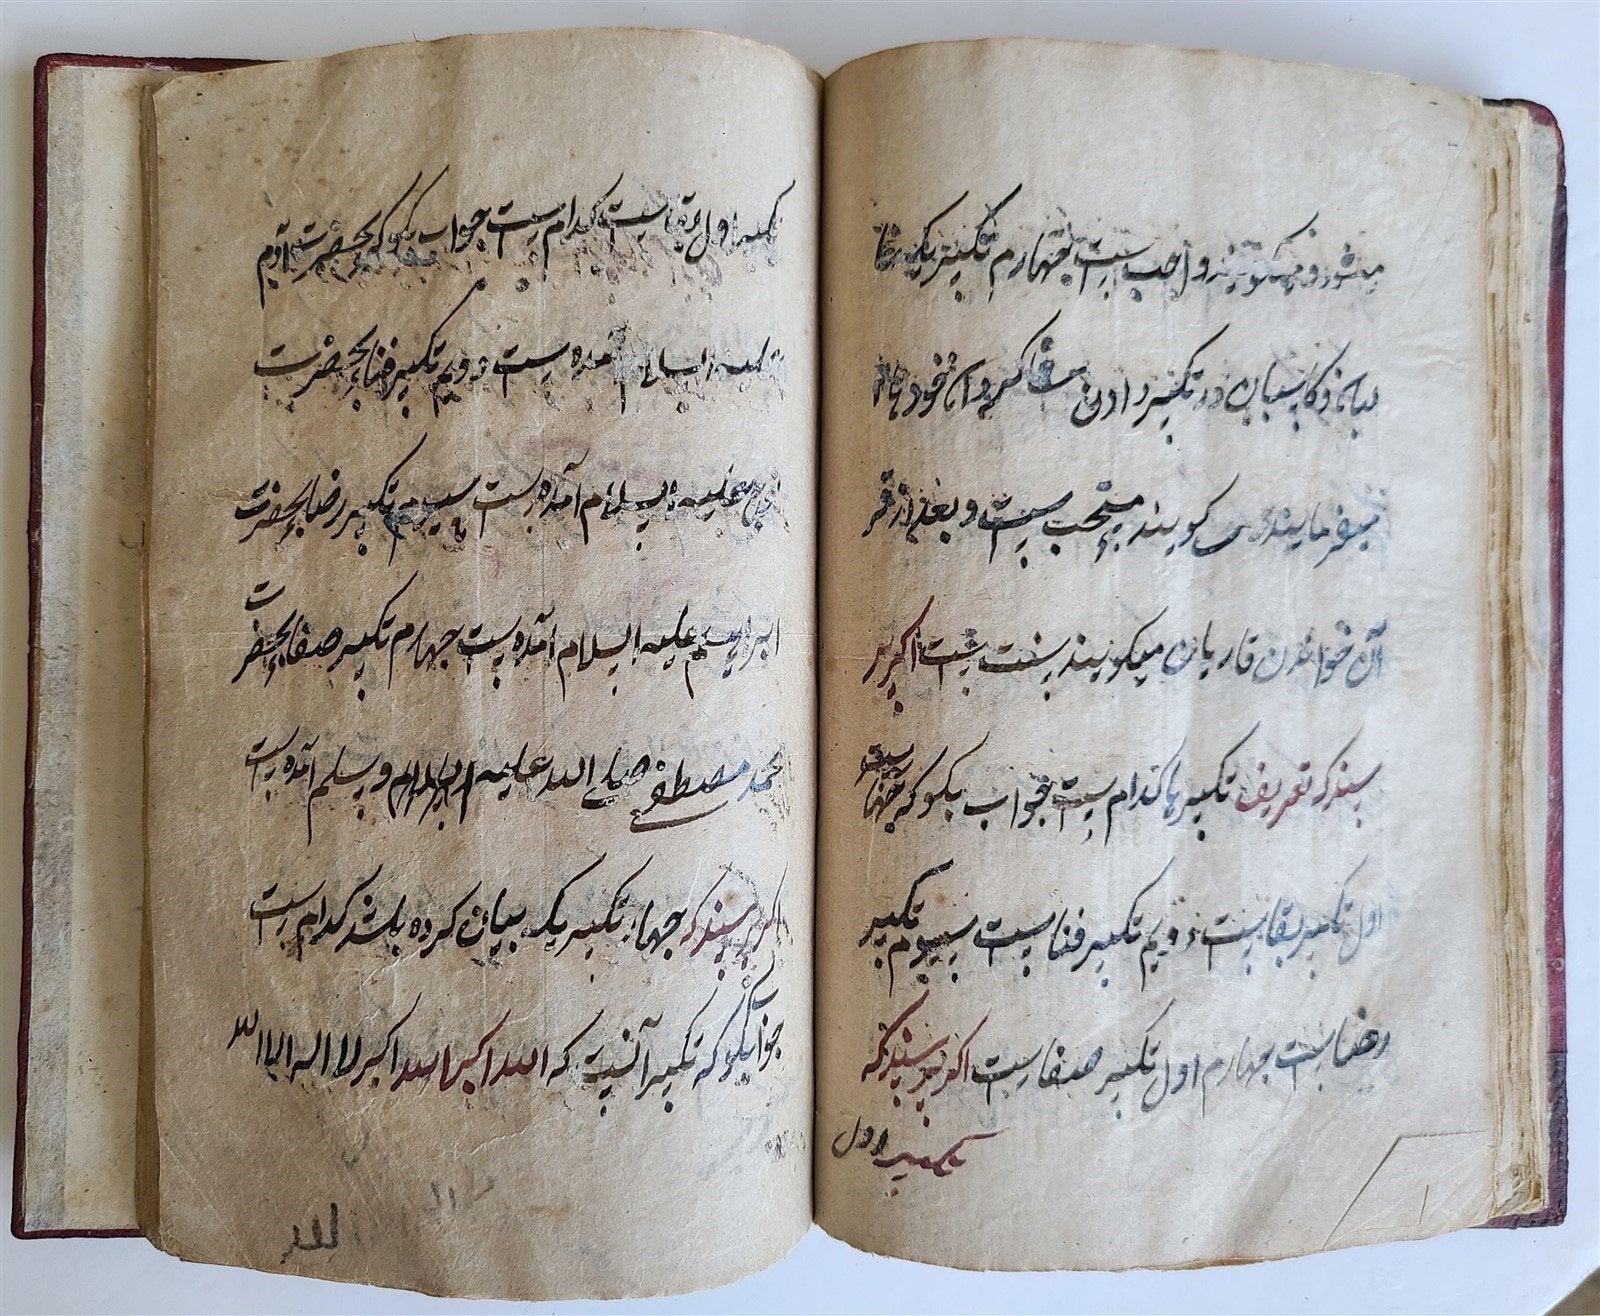 میشود و میگویند واجب است چهارم تکبیر یک
در تکبیر دادن خود
میفرمایند می گویند مستحب است و بعد از
آن خواندن قاریان میگویند سنت است اکر پر
سند که تعریف تکبیرها کدام است جواب بکو که چهار است
اول تکبیر بقا است دویم تکبیر فنا است سیوم تکبیر
رضا است چهارم اول تکبیر صفا است اکر پرسند که
تکبیر اول
تکبیر اول بقا است کدام است جواب بکو که بحضرت آدم
علیه السلام آمده است دویم تکبیر فنا بحضرت
نوح علیه السلام آمده است سیوم تکبیر رضا بحضرت
ابراهیم علیه السلام آمده است چهارم تکبیر صفا بحضرت
محمد مصطفی صلی الله علیه و سلم آمده است
اکر پرسند که چهار تکبیر یک بیان کرده باشد کدام است
جواب بکو که تکبیر آنست که الله اکبر الله اکبر لا اله الا الله
الله